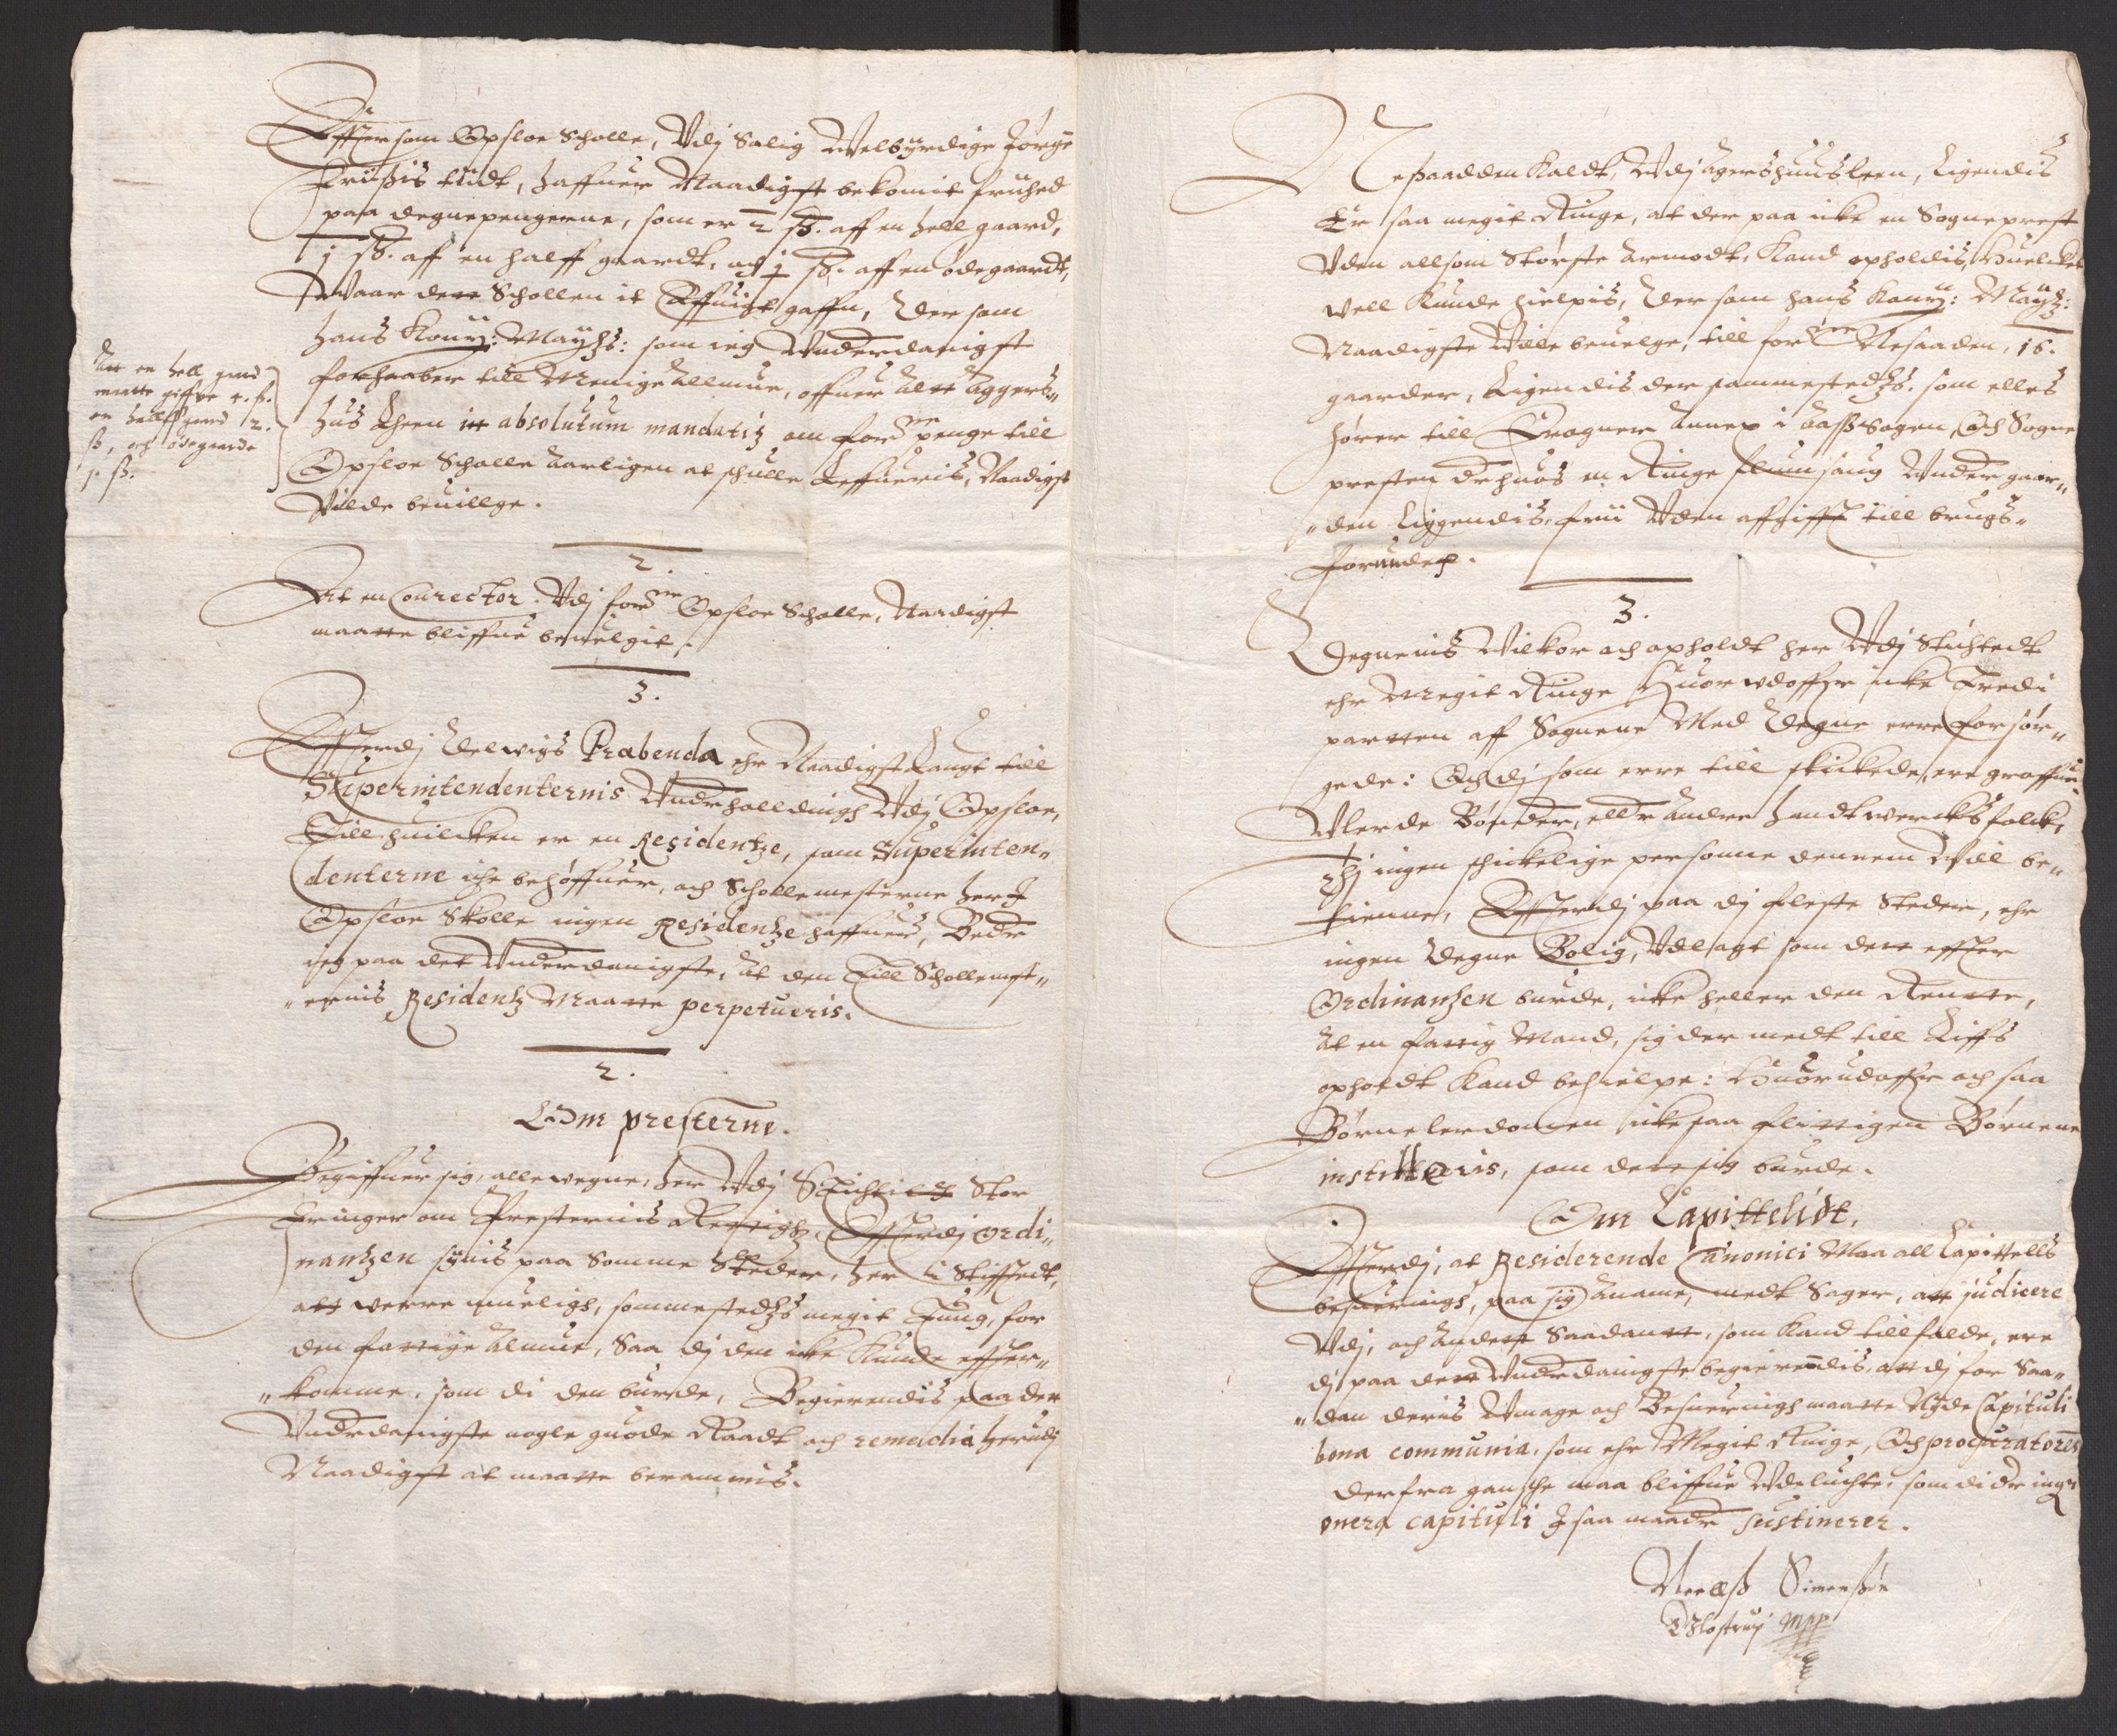 Effttersom Opsloe Scholle, Vdj Salig Velbyrdige Jørge
Friisis tiidt, haffuer Naadigst bekomit friihed
paa degnepengerne, som er 2 ß. aff en hell gaard,
1 ß. aff en halff gaardt, og ß. aff en ødegaardt,
Vaar dett Schollen it gaffn, Der som
hans Kong: Maytz: som ieg Vnderdanigst
forhaaber till Menige Allmue, offuer alt Aggers-
hus Lheen in absolutum mandatis om forne penge till
Opsloe Scholle Aarligen at schulle Leffueris, Naadigst
Vilde beuillge.
Att en hell gaard
matte giffue 4. ß.
en halff gaard 2.
ß, och ødegaarde
1. ß.
2.
At en Conrector Vdj forne Opsloe Scholle, Naadigst
maatte bliffue beuilgit,
3.
Effterdj Præbenda ehr Naadigst Laugt till
Superintendenternis Vnderholdingh Vdj Opsloe,
Till huilcken er en Residentze, som Superinten-
denterne iche behøffuer, och Schollemesterne her I
Opsloe Skolle ingen Residentze haffuer, Beder
ieg paa det Vnderdanigste, at den Till Schollemest-
ernis Residentz Maatte perpetueris.
2.
Om presterne.
Begiffuer sig, alleuegne, her Vdj Stichtit Stor
Eringer om Presternis Rettigh, Effterdj Ordi-
nantzen siunis paa Somme Steder, her i Stifftedt,
att verre mueligh, sommestedtz megit Tung, for
den fattige Almue, Saa dj den icke Kunde effter-
komme, som di den burde, Begierendis paa det
Vnderdanigste nogle guode Raadt och remedia herudj
Naadigst at maatte berammis.
Nesaaddem Kaldt, Vdj Agershuusleen, Ligendis
Er saa megit Ringe, at der paa icke en Sogneprest
Vden allsom Største Armodt, Kand opholdis, Huelcket
vell Kunde hielpis, Der som hans Kong: Maytz:
Naadigste Ville beuilge, till forne Nesaaden, 16.
gaarder, Ligendis der sammestedtz, som elles
hører till Frogner Annex i Aass Sogen, Och Sogne
presten der huos en Ringe flumsaug Vnder gaar-
den Liggendis, frii Vden affgifft till brugs-
forundet.
3.
Degnenis Vilkor och opholdt her Vdj Stichtedt
ehr Megit Ringe Huor vdoffuer icke Tredi
parten aff Sognene Med Degne erre forsør-
gede: Och dj som erre till skickede, ere groffue
Vlerde Bønder, eller Andre handtwercksfolck,
Thj ingen schickelige personne dennem Vill be-
tienne, Effterdj paa dj fleste Steder, ehr
ingen Degne Bolig, Vdlagt som dett effter
Ordinantzen burde, icke heller den Rentte,
At en fattig Mand, sig der medt till Liffs
opholdt Kand behielpe: Huorudoffuer och saa
Børnelerdomen icke saa flittigen Børnene
institueris, som dett sig burde.
Om Capittelidt.
Effterdj, at Residerende Canonici Maa all Capittells
besueringh, paa sig Aname, medt Sager, att judicere
Vdj, och andett Saadantt, som Kand tillfalde, ere
dj paa dett Vnderdanigste begierendis, att dj for Saa-
dan deris Vmage och Besueringh maatte Nyde Capituli
bona communia, som ehr Megit Ringe, Och procuratores
derfra gansche maa bliffue Vdeluchte, som di der ingen
onera capituli I saa maade sustinerer.
Neellß Simenßøn
Glostrup mpp